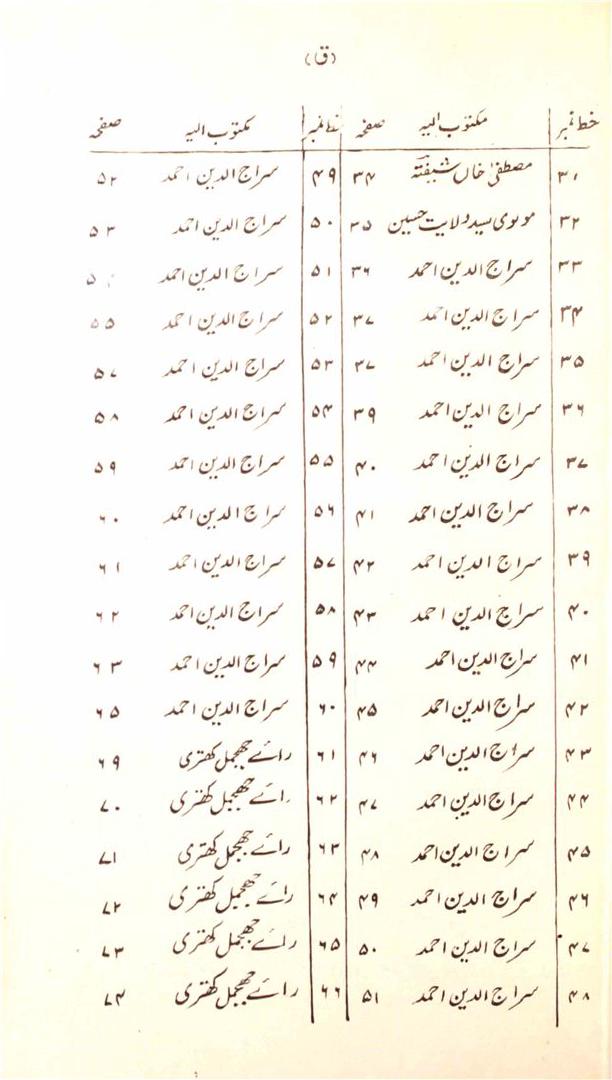 (ق)
خط نمبر مکتوب الیہ صفحہ خط نمبر مکتوب الیہ صفحہ
۳۱ مصطفیٰ خاں شیفتہ ۳۴ ۴۹ سراج الدین احمد ۵۲
۳۲ مولوی سید ولایت حسین ۳۵ ۵۰ سراج الدین احمد ۵۳
۳۳ سراج الدین احمد ۳۶ ۵۱ سراج الدین احمد ۵
۳۴ سراج الدین احمد ۳۷ ۵۲ سراج الدین احمد ۵۵
۳۵ سراج الدین احمد ۳۷ ۵۳ سراج الدین احمد ۵۷
۳۶ سراج الدین احمد ۳۹ ۵۴ سراج الدین احمد ۵۸
۳۷ سراج الدین احمد ۴۰ ۵۵ سراج الدین احمد ۵۹
۳۸ سراج الدین احمد ۴۱ ۵۶ سراج الدین احمد ۶۰
۳۹ سراج الدین احمد ۴۲ ۵۷ سراج الدین احمد ۶۱
۴۰ سراج الدین احمد ۴۳ ۵۸ سراج الدین احمد ۶۲
۴۱ سراج الدین احمد ۴۴ ۵۹ سراج الدین احمد ۶۳
۴۲ سراج الدین احمد ۴۵ ۶۰ سراج الدین احمد ۶۵
۴۳ سراج الدین احمد ۴۶ ۶۱ رائے چھجمل کھتری ۶۹
۴۴ سراج الدین احمد ۴۷ ۶۲ رائے چھجمل کھتری ۷۰
۴۵ سراج الدین احمد ۴۸ ۶۳ رائے چھجمل کھتری ۷۱
۴۶ سراج الدین احمد ۴۹ ۶۴ رائے چھجمل کھتری ۷۲
۴۷ سراج الدین احمد ۵۰ ۶۵ رائے چھجمل کھتری ۷۳
۴۸ سراج الدین احمد ۵۱ ۶۶ رائے چھجمل کھتری ۷۴